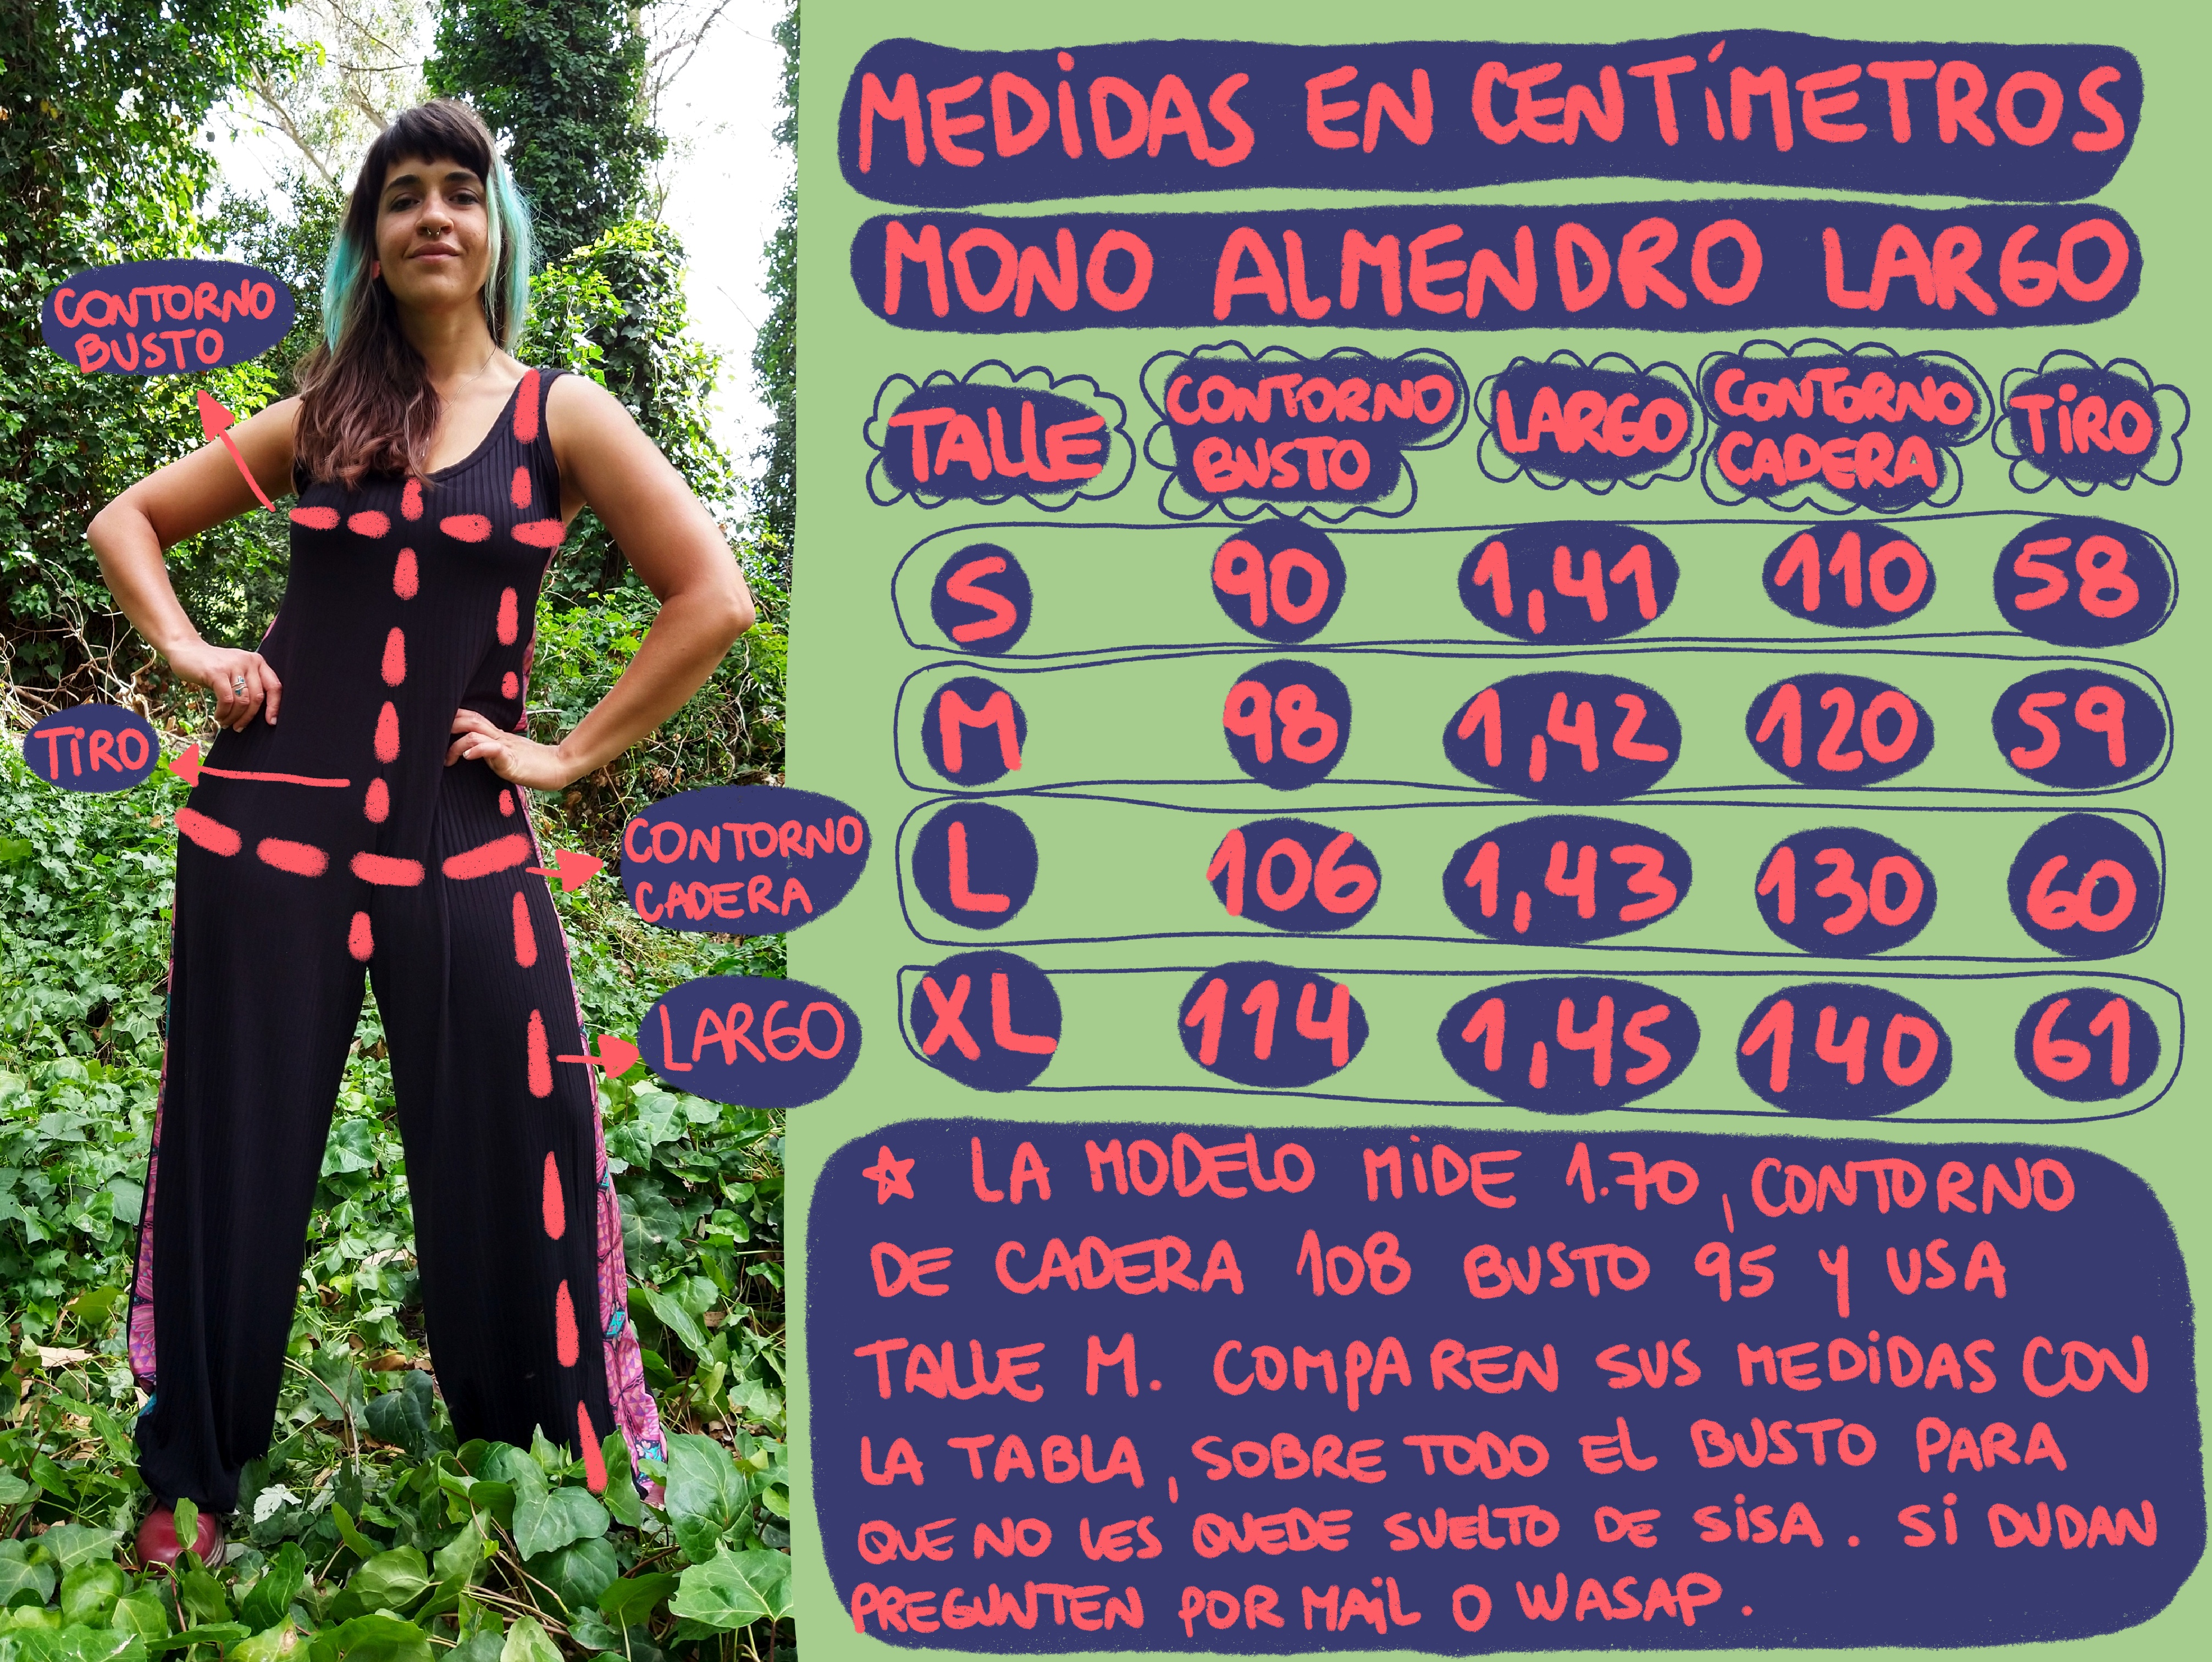 MEDIDAS EN CENTÍMETROS
MONO ALMENDRO LARGO
TALLE CONTORNO BUSTO LARGO CONTORNO CADERA TIRO
S 90 1,41 110 58
M 98 1,42 120 59
L 106 1,43 130 60
XL 114 1,45 140 61
☆ LA MODELO MIDE 1.70, CONTORNO
DE CADERA 108 BUSTO 95 Y USA
TALLE M. COMPAREN SUS MEDIDAS CON
LA TABLA, SOBRE TODO EL BUSTO PARA
QUE NO LES QUEDE SUELTO DE SISA. SI DUDAN
PREGUNTEN POR MAIL O WASAP.
CONTORNO
BUSTO
TIRO
CONTORNO
CADERA
LARGO